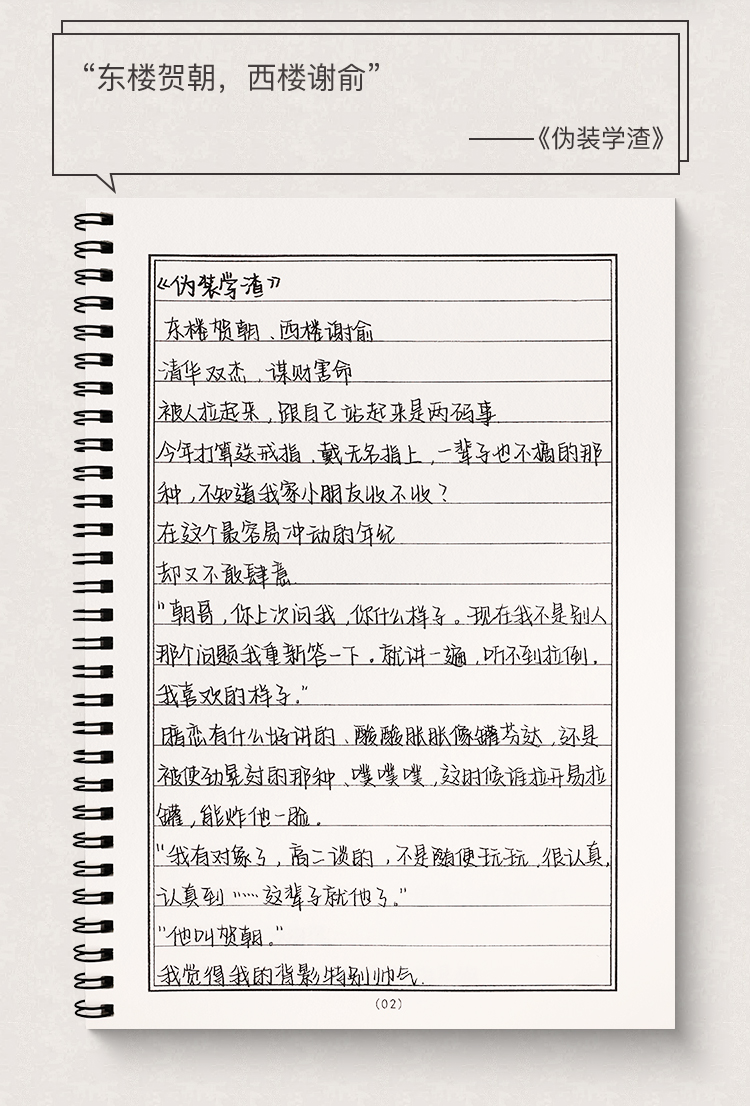 “东楼贺朝，西楼谢俞”
——《伪装学渣》
《伪装学渣》
东楼贺朝、西楼谢俞
清华双杰，谋财害命
被人拉起来，跟自己站起来是两码事
今年打算送戒指，戴无名指上，一辈子也不摘的那
种，不知道我家小朋友收不收？
在这个最容易冲动的年纪
却又不敢肆意
“朝哥，你上次问我，你什么样子。现在我不是别人
那个问题我重新答一下。就讲一遍，听不到拉倒。
我喜欢的样子。”
暗恋有什么好讲的、酸酸胀胀像罐芬达，还是
被使劲晃过的那种、噗噗噗，这时候谁拉开易拉
罐，能炸他一脸。
“我有对象了，高二谈的，不是随便玩玩，很认真，
认真到……这辈子就他了。”
“他叫贺朝。”
我觉得我的背影特别帅气.
(02)